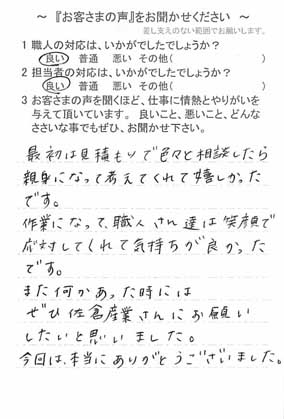 ～ 『お客さまの声』をお聞かせください ～
差し支えのない範囲でお願いします。
1 職人の対応は、いかがでしたでしょうか？
良い 普通 悪い その他( )
2 担当者の対応は、いかがでしたでしょうか？
良い 普通 悪い その他( )
3 お客さまの声を聞くほど、仕事に情熱とやりがいを
与えて頂いています。 良いこと、悪いこと、どんな
ささいな事でもぜひ、お聞かせ下さい。
最初は見積もりで色々と相談したら
親身になって考えてくれて嬉しかった
です。
作業になって、職人さん達は笑顔で
応対してくれて気持ちが良かった
です。
また何かあった時には
ぜひ佐倉産業さんにお願い
したいと思いました。
今回は、本当にありがとうございました。